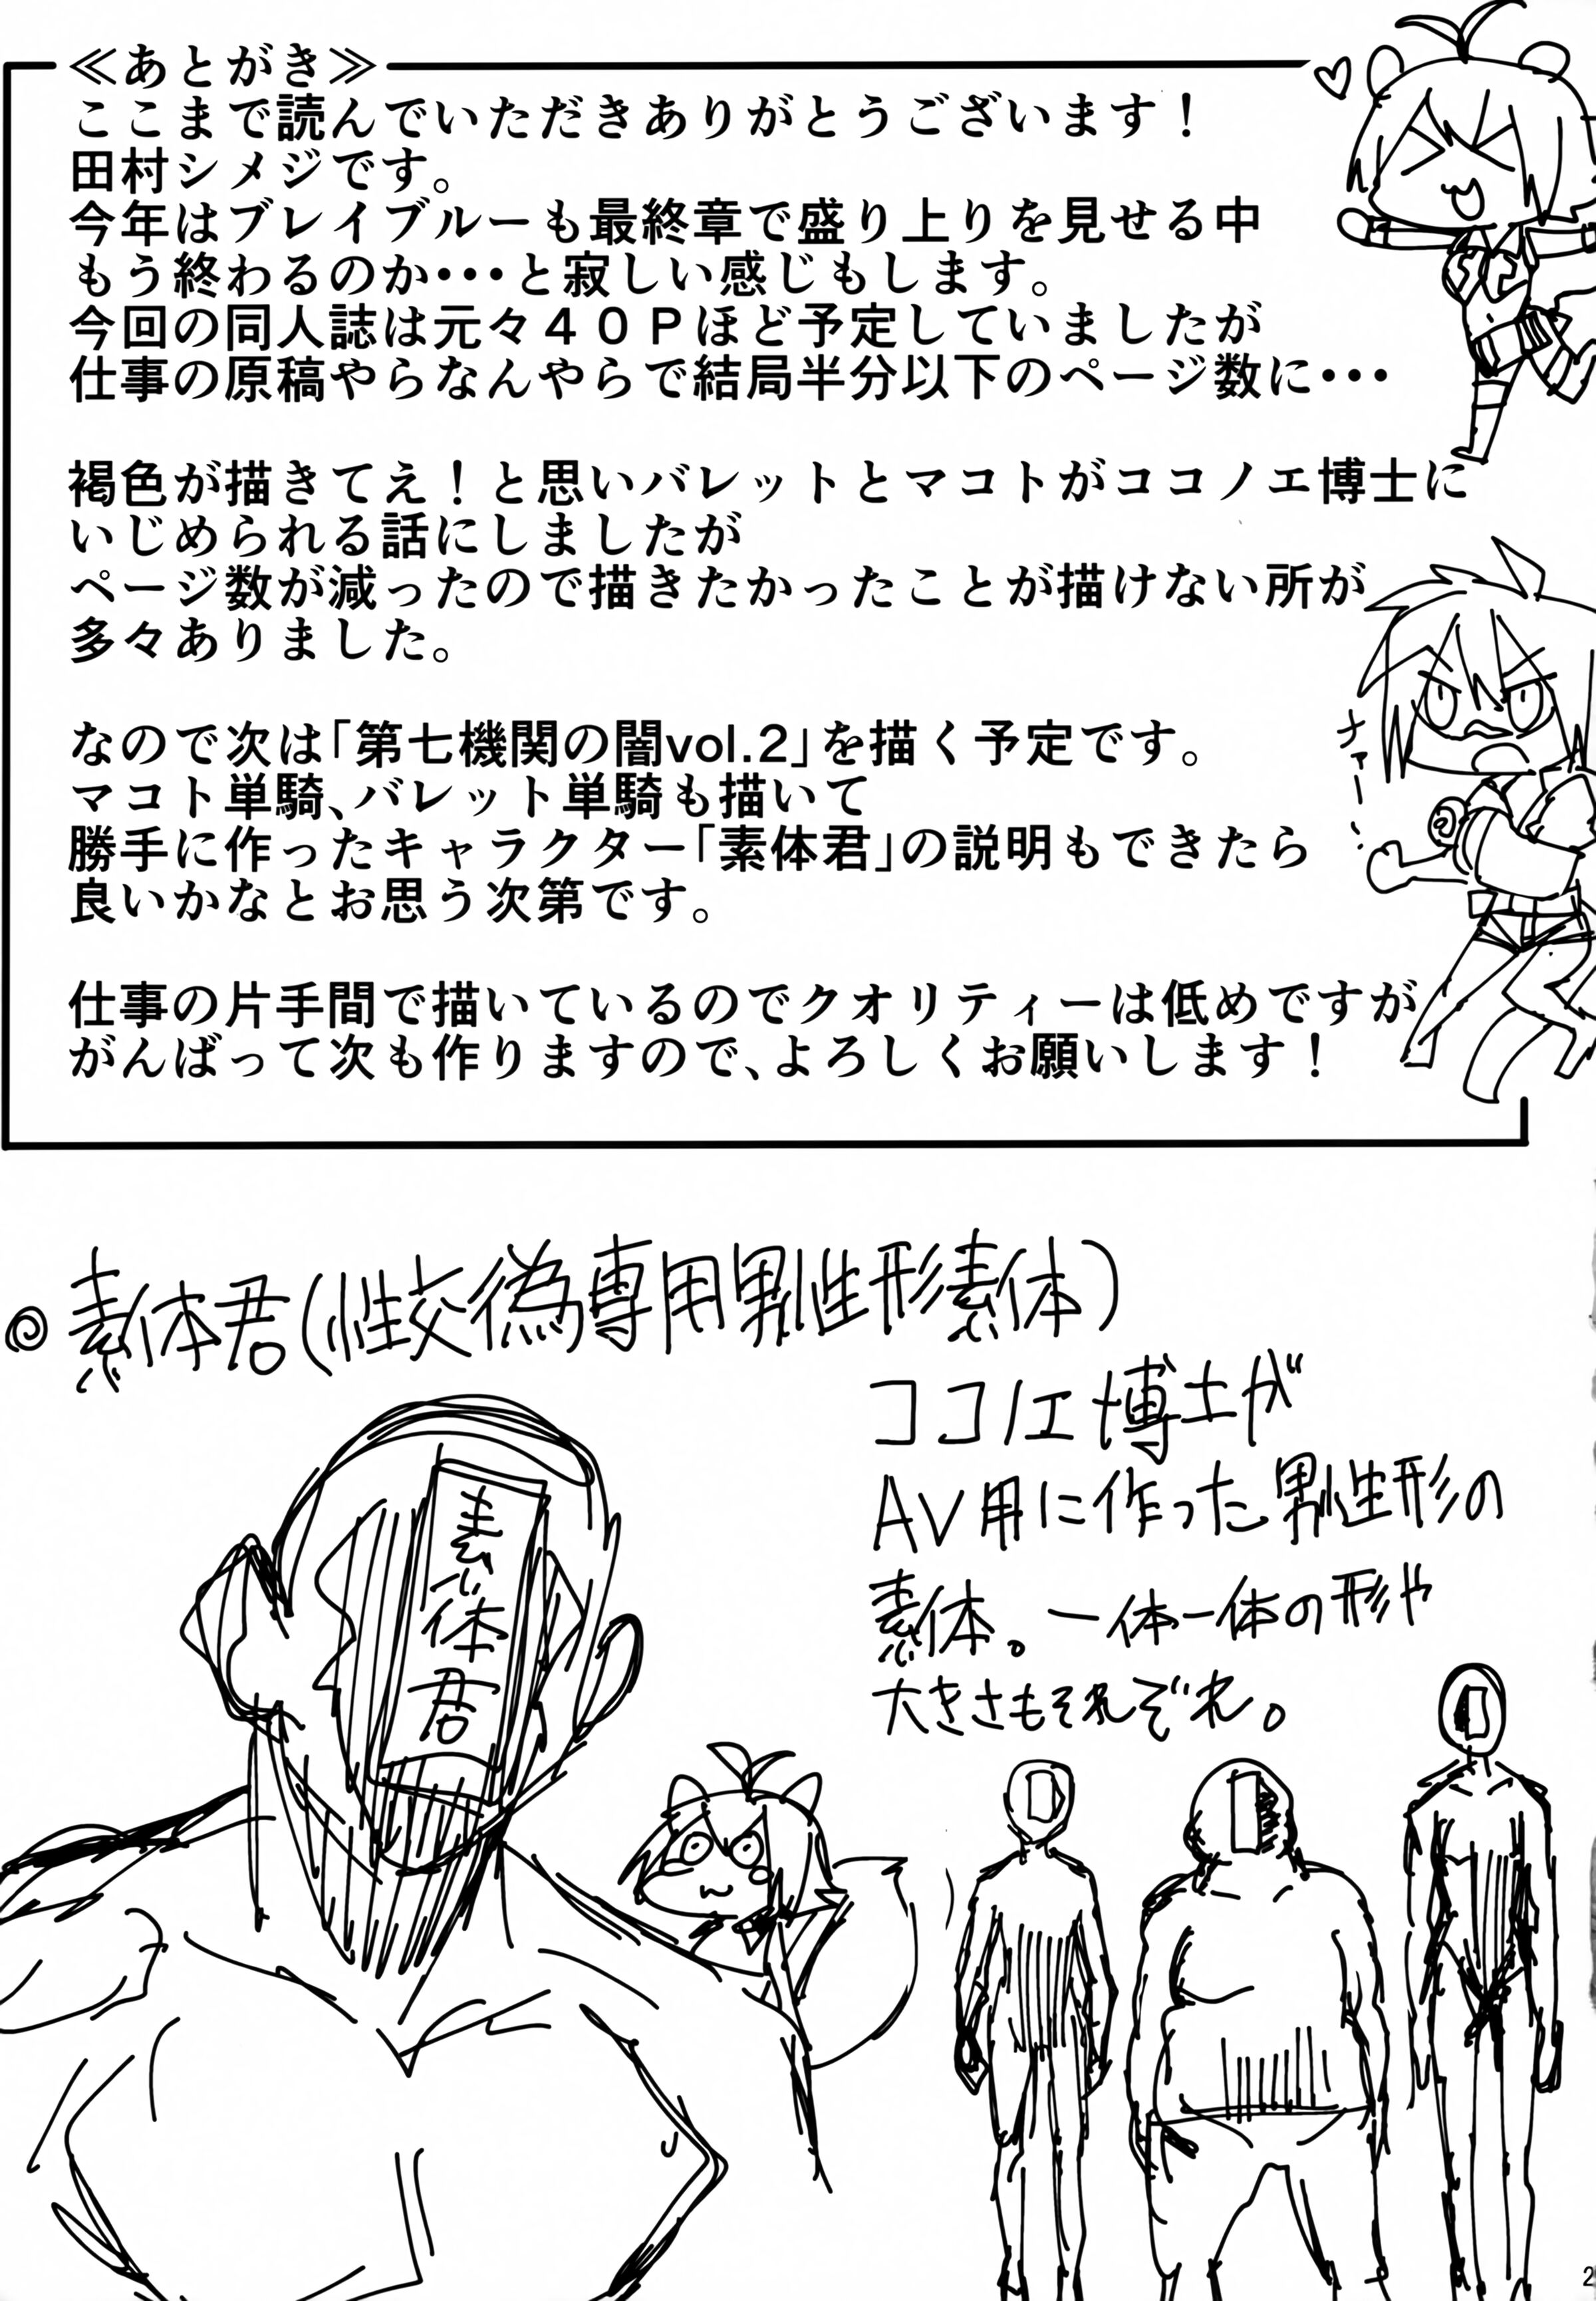 ≪あとがき≫
ここまで読んでいただきありがとうございます！
田村シメジです。
今年はブレイブルーも最終章で盛り上りを見せる中
もう終わるのか・・・と寂しい感じもします。
今回の同人誌は元々４０Ｐほど予定していましたが
仕事の原稿やらなんやらで結局半分以下のページ数に・・・
褐色が描きてえ！と思いバレットとマコトがココノエ博士に
いじめられる話にしましたが
ページ数が減ったので描きたかったことが描けない所が
多々ありました。
なので次は「第七機関の闇vol.2」を描く予定です。
マコト単騎、バレット単騎も描いて
勝手に作ったキャラクター「素体君」の説明もできたら
良いかなとお思う次第です。
仕事の片手間で描いているのでクオリティーは低めですが
がんばって次も作りますので、よろしくお願いします！
素体君(性交偽専用男性形素体)
ココノエ博士が
AV用に作った男性形の
素体。一体一体の形や
大きさもそれぞれ。
素体君
2